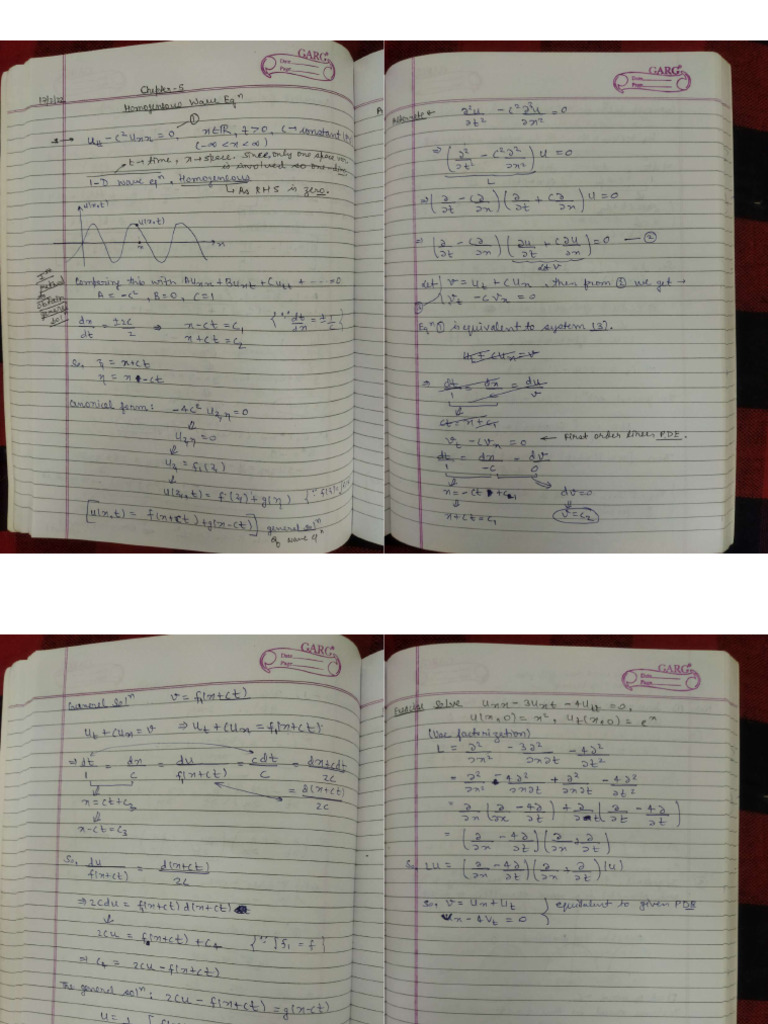 GARG
Date
Page
13/2/22
Chapter-5
Homogeneous Wave Eqⁿ
①
u_tt - c²u_xx = 0, x∈ℝ, t>0, c → constant
(-∞ < x < ∞)
t → time, x → space. Since, only one space
is involved so one
1-D wave eqⁿ, Homogeneous
↳ As RHS is zero.
u(x,t)
u(x,t)
x
Comparing this with Au_xx + Bu_xt + Cu_tt + ... = 0
A = -c², B = 0, C = 1
dx/dt = ±2c/2 ⇒ x-ct = c₁ {∵ dt/dx = ±1/c}
x+ct = c₂
So, ξ = x+ct
η = x-ct
Canonical form: -4c² u_ξη = 0
u_ξη = 0
u_ξ = f₁(ξ)
u(x,t) = f(ξ) + g(η)
[u(x,t) = f(x+ct) + g(x-ct)] general solⁿ
of wave eqⁿ
GARG
Date
Page
Alternate ∂²u/∂t² - c²∂²u/∂x² = 0
⇒ (∂²/∂t² - c²∂²/∂x²) u = 0
L
⇒ (∂/∂t - c∂/∂x)(∂/∂t + c∂/∂x) u = 0
⇒ (∂/∂t - c∂/∂x)(∂u/∂t + c∂u/∂x) = 0 — ②
let v
Let v = u_t + cu_x, then from ② we get →
v_t - cv_x = 0
Eqⁿ ① is equivalent to system (3).
u_t + cu_x = v
⇒ dt/1 = dx/c = du/v
ct = x + c₁
v_t - cv_x = 0 ← First order linear PDE.
dt/1 = dx/-c = dv/0
x = -ct + c₁ dv = 0
x+ct = c₁ v = c₂
GARG
Date
Page
General Solⁿ v = f₁(x+ct)
u_t + cu_x = v ⇒ u_t + cu_x = f₁(x+ct)
⇒ dt/1 = dx/c = du/f(x+ct) = cdt/c = dx+cdt/2c
= d(x+ct)/2c
x = ct + c₃
x-ct = c₃
So, du/f(x+ct) = d(x+ct)/2c
⇒ 2cdu = f(x+ct) d(x+ct)
2cu = f(x+ct) + c₄ {∵ ∫f₁ = f}
⇒ c₄ = 2cu - f(x+ct)
The general solⁿ: 2cu - f(x+ct) = g(x-ct)
GARG
Date
Page
Solve u_xx - 3u_xt - 4u_tt = 0,
u(x,0) = x², u_t(x,0) = eˣ
(Use factorization)
L = ∂²/∂x² - 3∂²/∂x∂t - 4∂²/∂t²
= ∂²/∂x² - 4∂²/∂x∂t + ∂²/∂x∂t - 4∂²/∂t²
= ∂/∂x (∂/∂x - 4∂/∂t) + ∂/∂t (∂/∂x - 4∂/∂t)
= (∂/∂x - 4∂/∂t)(∂/∂x + ∂/∂t)
Lu = (∂/∂x - 4∂/∂t)(∂/∂x + ∂/∂t)(u)
So, v = u_x + u_t } equivalent to given PDE
v_x - 4v_t = 0